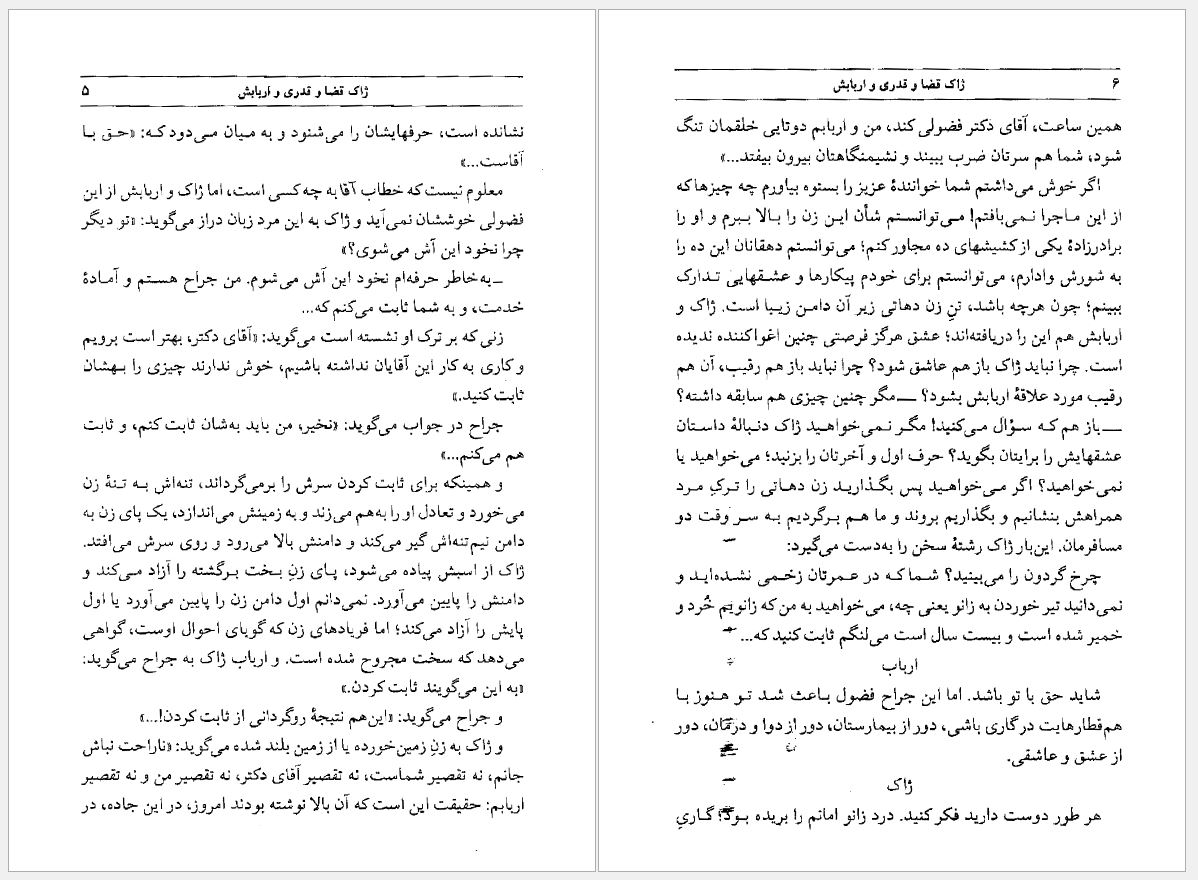 ژاک قضا و قدری و اربابش ۵
نشانده است، حرفهایشان را می‌شنود و به میان می‌دود که: «حق با
آقاست...»
معلوم نیست که خطاب آقا به چه کسی است، اما ژاک و اربابش از این
فضولی خوششان نمی‌آید و ژاک به این مرد زبان دراز می‌گوید: «تو دیگر
چرا نخود این آش می‌شوی؟»
ـ به‌خاطر حرفه‌ام نخود این آش می‌شوم. من جراح هستم و آمادهٔ
خدمت، و به شما ثابت می‌کنم که...
زنی که بر ترک او نشسته است می‌گوید: «آقای دکتر، بهتر است برویم
و کاری به کار این آقایان نداشته باشیم، خوش ندارند چیزی را بهشان
ثابت کنید.»
جراح در جواب می‌گوید: «نخیر، من باید به‌شان ثابت کنم، و ثابت
هم می‌کنم...»
و همینکه برای ثابت کردن سرش را برمی‌گرداند، تنه‌اش به تنهٔ زن
می‌خورد و تعادل او را به‌هم می‌زند و به زمینش می‌اندازد، یک پای زن به
دامن نیم‌تنه‌اش گیر می‌کند و دامنش بالا می‌رود و روی سرش می‌افتد.
ژاک از اسبش پیاده می‌شود، پای زنِ بخت برگشته را آزاد می‌کند و
دامنش را پایین می‌آورد. نمی‌دانم اول دامن زن را پایین می‌آورد یا اول
پایش را آزاد می‌کند؛ اما فریادهای زن که گویای احوال اوست، گواهی
می‌دهد که سخت مجروح شده است. و ارباب ژاک به جراح می‌گوید:
«به این می‌گویند ثابت کردن.»
و جراح می‌گوید: «این‌هم نتیجهٔ روگردانی از ثابت کردن!...»
و ژاک به زنِ زمین‌خورده یا از زمین بلند شده می‌گوید: «ناراحت نباش
جانم، نه تقصیر شماست، نه تقصیر آقای دکتر، نه تقصیر من و نه تقصیر
اربابم: حقیقت این است که آن بالا نوشته بودند امروز، در این جاده، در
۶ ژاک قضا و قدری و اربابش
همین ساعت، آقای دکتر فضولی کند، من و اربابم دوتایی خلقمان تنگ
شود، شما هم سرتان ضرب ببیند و نشیمنگاهتان بیرون بیفتد...»
اگر خوش می‌داشتم شما خوانندهٔ عزیز را بستوه بیاورم چه چیزها که
از این ماجرا نمی‌بافتم! می‌توانستم شأن این زن را بالا ببرم و او را
برادرزادهٔ یکی از کشیشهای ده مجاور کنم؛ می‌توانستم دهقانان این ده را
به شورش وادارم، می‌توانستم برای خودم پیکارها و عشقهایی تدارک
ببینم؛ چون هرچه باشد، تنِ زن دهاتی زیر آن دامن زیبا است. ژاک و
اربابش هم این را دریافته‌اند؛ عشق هرگز فرصتی چنین اغواکننده ندیده
است. چرا نباید ژاک باز هم عاشق شود؟ چرا نباید باز هم رقیب، آن هم
رقیب مورد علاقهٔ اربابش بشود؟ ــ مگر چنین چیزی هم سابقه داشته؟
ــ باز هم که سؤال می‌کنید! مگر نمی‌خواهید ژاک دنبالهٔ داستان
عشقهایش را برایتان بگوید؟ حرف اول و آخرتان را بزنید؛ می‌خواهید یا
نمی‌خواهید؟ اگر می‌خواهید پس بگذارید زن دهاتی را ترکِ مرد
همراهش بنشانیم و بگذاریم بروند و ما هم برگردیم به سر وقت دو
مسافرمان. این‌بار ژاک رشتهٔ سخن را به‌دست می‌گیرد:
چرخ گردون را می‌بینید؟ شما که در عمرتان زخمی نشده‌اید و
نمی‌دانید تیر خوردن به زانو یعنی چه، می‌خواهید به من که زانویم خُرد و
خمیر شده است و بیست سال است می‌لنگم ثابت کنید که...
ارباب
شاید حق با تو باشد. اما این جراح فضول باعث شد تو هنوز با
هم‌قطارهایت در گاری باشی، دور از بیمارستان، دور از دوا و درمان، دور
از عشق و عاشقی.
ژاک
هر طور دوست دارید فکر کنید. درد زانو امانم را بریده بود؛ گاریِ